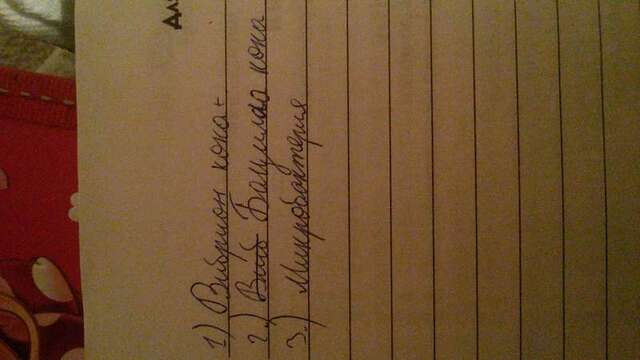 Дл
1) Вибрион кока+
2.) Виб Бацилла кока
3.) Микробактерия